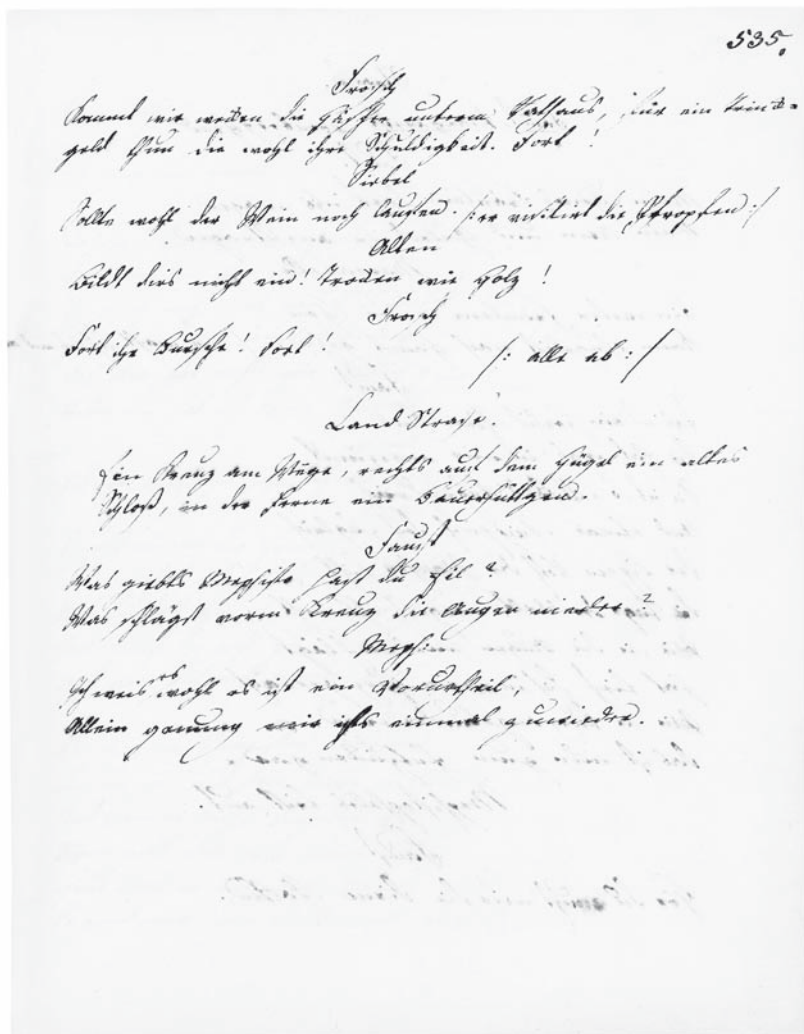 535.
Frosch
Kommt wir wecken die Häscher unterm Rathaus, für ein Trinck=
geld thun die wohl ihre Schuldigkeit. Fort!
Siebel
Sollte wohl der Wein noch lauffen. /: er visitirt die Pfropfen :/
Alten
Bildt dirs nicht ein! Trocken wie Holz!
Frosch
Fort ihr Bursche! Fort! /: alle ab :/
Land Strase.
Ein Kreuz am Weege, rechts auf dem Hügel ein altes
Schloß, in der Ferne ein Bauerhüttgen.
Faust
Was giebts Mephisto hast du Eil?
Was schlägst vorm Kreuz die Augen nieder?
Meph:
Ich weis es wohl es ist ein Vorurtheil,
Allein genung mir ists einmal zuwieder.